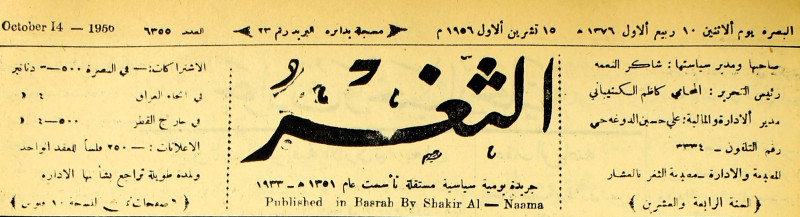 البصرة يوم الاثنين ١٠ ربيع الاول ١٣٧٦ ھ
١٥ تشرين الاول ١٩٥٦ م
مسجلة بدائرة البريد رقم ٢٣
العدد ٦٣٥٥
October 14 — 1956
صاحبها ومدير سياستها : شاكر النعمه
رئيس التحرير : المحامي كاظم الكتيباني
مدير الادارة والمالية : علي حسين الدوغه جي
رقم التلفون — ٣٣٣٤
المطبعة والادارة — مطبعة الثغر بالعشار
( السنة الرابعة والعشرين )
الثغر
جريدة يومية سياسية مستقلة تأسست عام ١٣٥١ ھ — ١٩٣٣
Published in Basrah By Shakir Al — Naama
الاشتراكات :— في البصرة ٥٠٠—٣ دنانير
في انحاء العراق ٤ د
في خارج القطر ٥٠٠—٤ د
الاعلانات : — ٢٥٠ فلساً للعقد الواحد
ولمدة طويلة تراجع بشأنها الادارة
٦ صفحات ثمن النسخة ١٠ فلوس